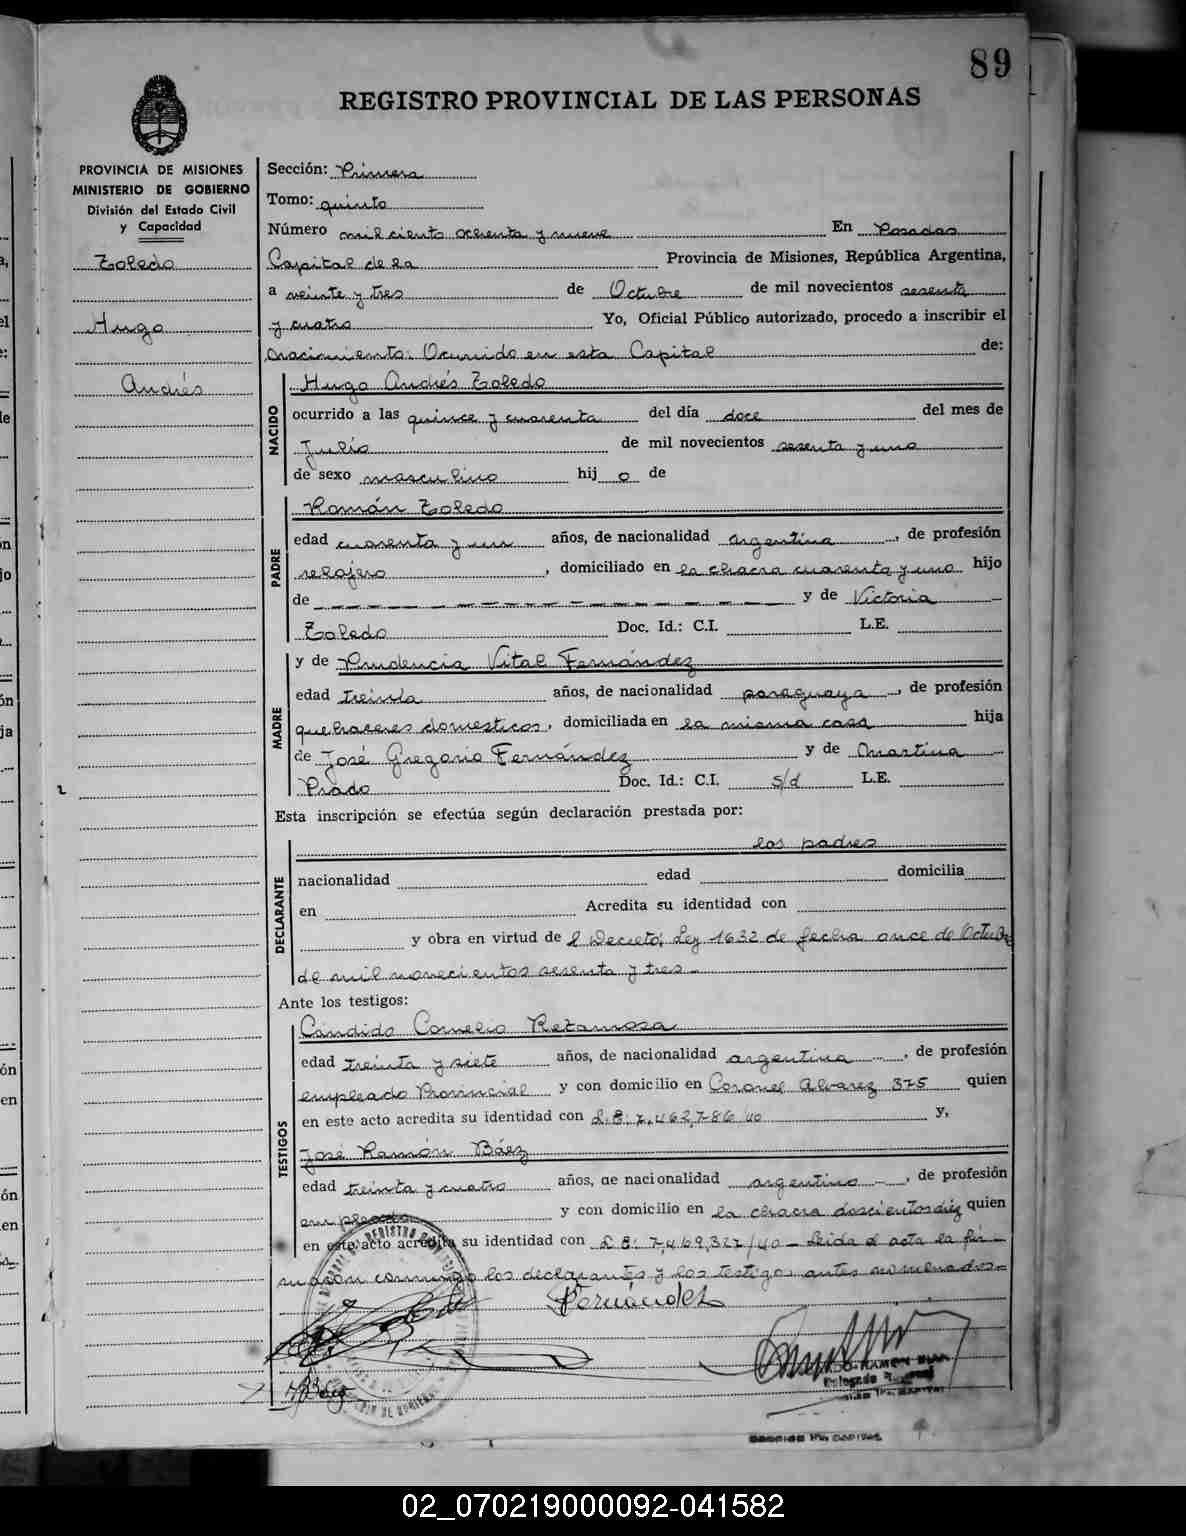 89
REGISTRO PROVINCIAL DE LAS PERSONAS
PROVINCIA DE MISIONES
MINISTERIO DE GOBIERNO
División del Estado Civil
y Capacidad
Toledo
Hugo
Andrés
Sección: Primera
Tomo: quinto
Número mil ciento ochenta y nueve En Posadas
Capital de la Provincia de Misiones, República Argentina,
a veinte y tres de Octubre de mil novecientos sesenta
y cuatro Yo, Oficial Público autorizado, procedo a inscribir el
nacimiento: Ocurrido en esta Capital de:
NACIDO
Hugo Andrés Toledo
ocurrido a las quince y cuarenta del día doce del mes de
Julio de mil novecientos sesenta y uno
de sexo masculino hij o de
PADRE
Román Toledo
edad cuarenta y un años, de nacionalidad argentina, de profesión
relojero, domiciliado en la chacra cuarenta y uno hijo
de y de Victoria
Toledo Doc. Id.: C.I. L.E.
MADRE
y de Prudencia Vital Fernández
edad treinta años, de nacionalidad paraguaya, de profesión
quehaceres domesticos, domiciliada en la misma casa hija
de José Gregorio Fernández y de Martina
Prado Doc. Id.: C.I. s/d L.E.
Esta inscripción se efectúa según declaración prestada por:
DECLARANTE
los padres
nacionalidad edad domicilia
en Acredita su identidad con
y obra en virtud de l Decreto, Ley 1632 de fecha once de Octubre
de mil novecientos sesenta y tres-
Ante los testigos:
TESTIGOS
Cándido Cornelio Retamosa
edad treinta y siete años, de nacionalidad argentina, de profesión
empleado Provincial y con domicilio en Coronel Alvarez 375 quien
en este acto acredita su identidad con L.E: 7,462,786/40 y,
José Ramón Báez
edad treinta y cuatro años, de nacionalidad argentino, de profesión
empleado y con domicilio en la chacra doscientos diéz quien
en este acto acredita su identidad con L E: 7,469,327/40 - Leida el acta la fir-
maron conmigo los declarantes y los testigos antes nombrados-
PFernández
02_070219000092-041582